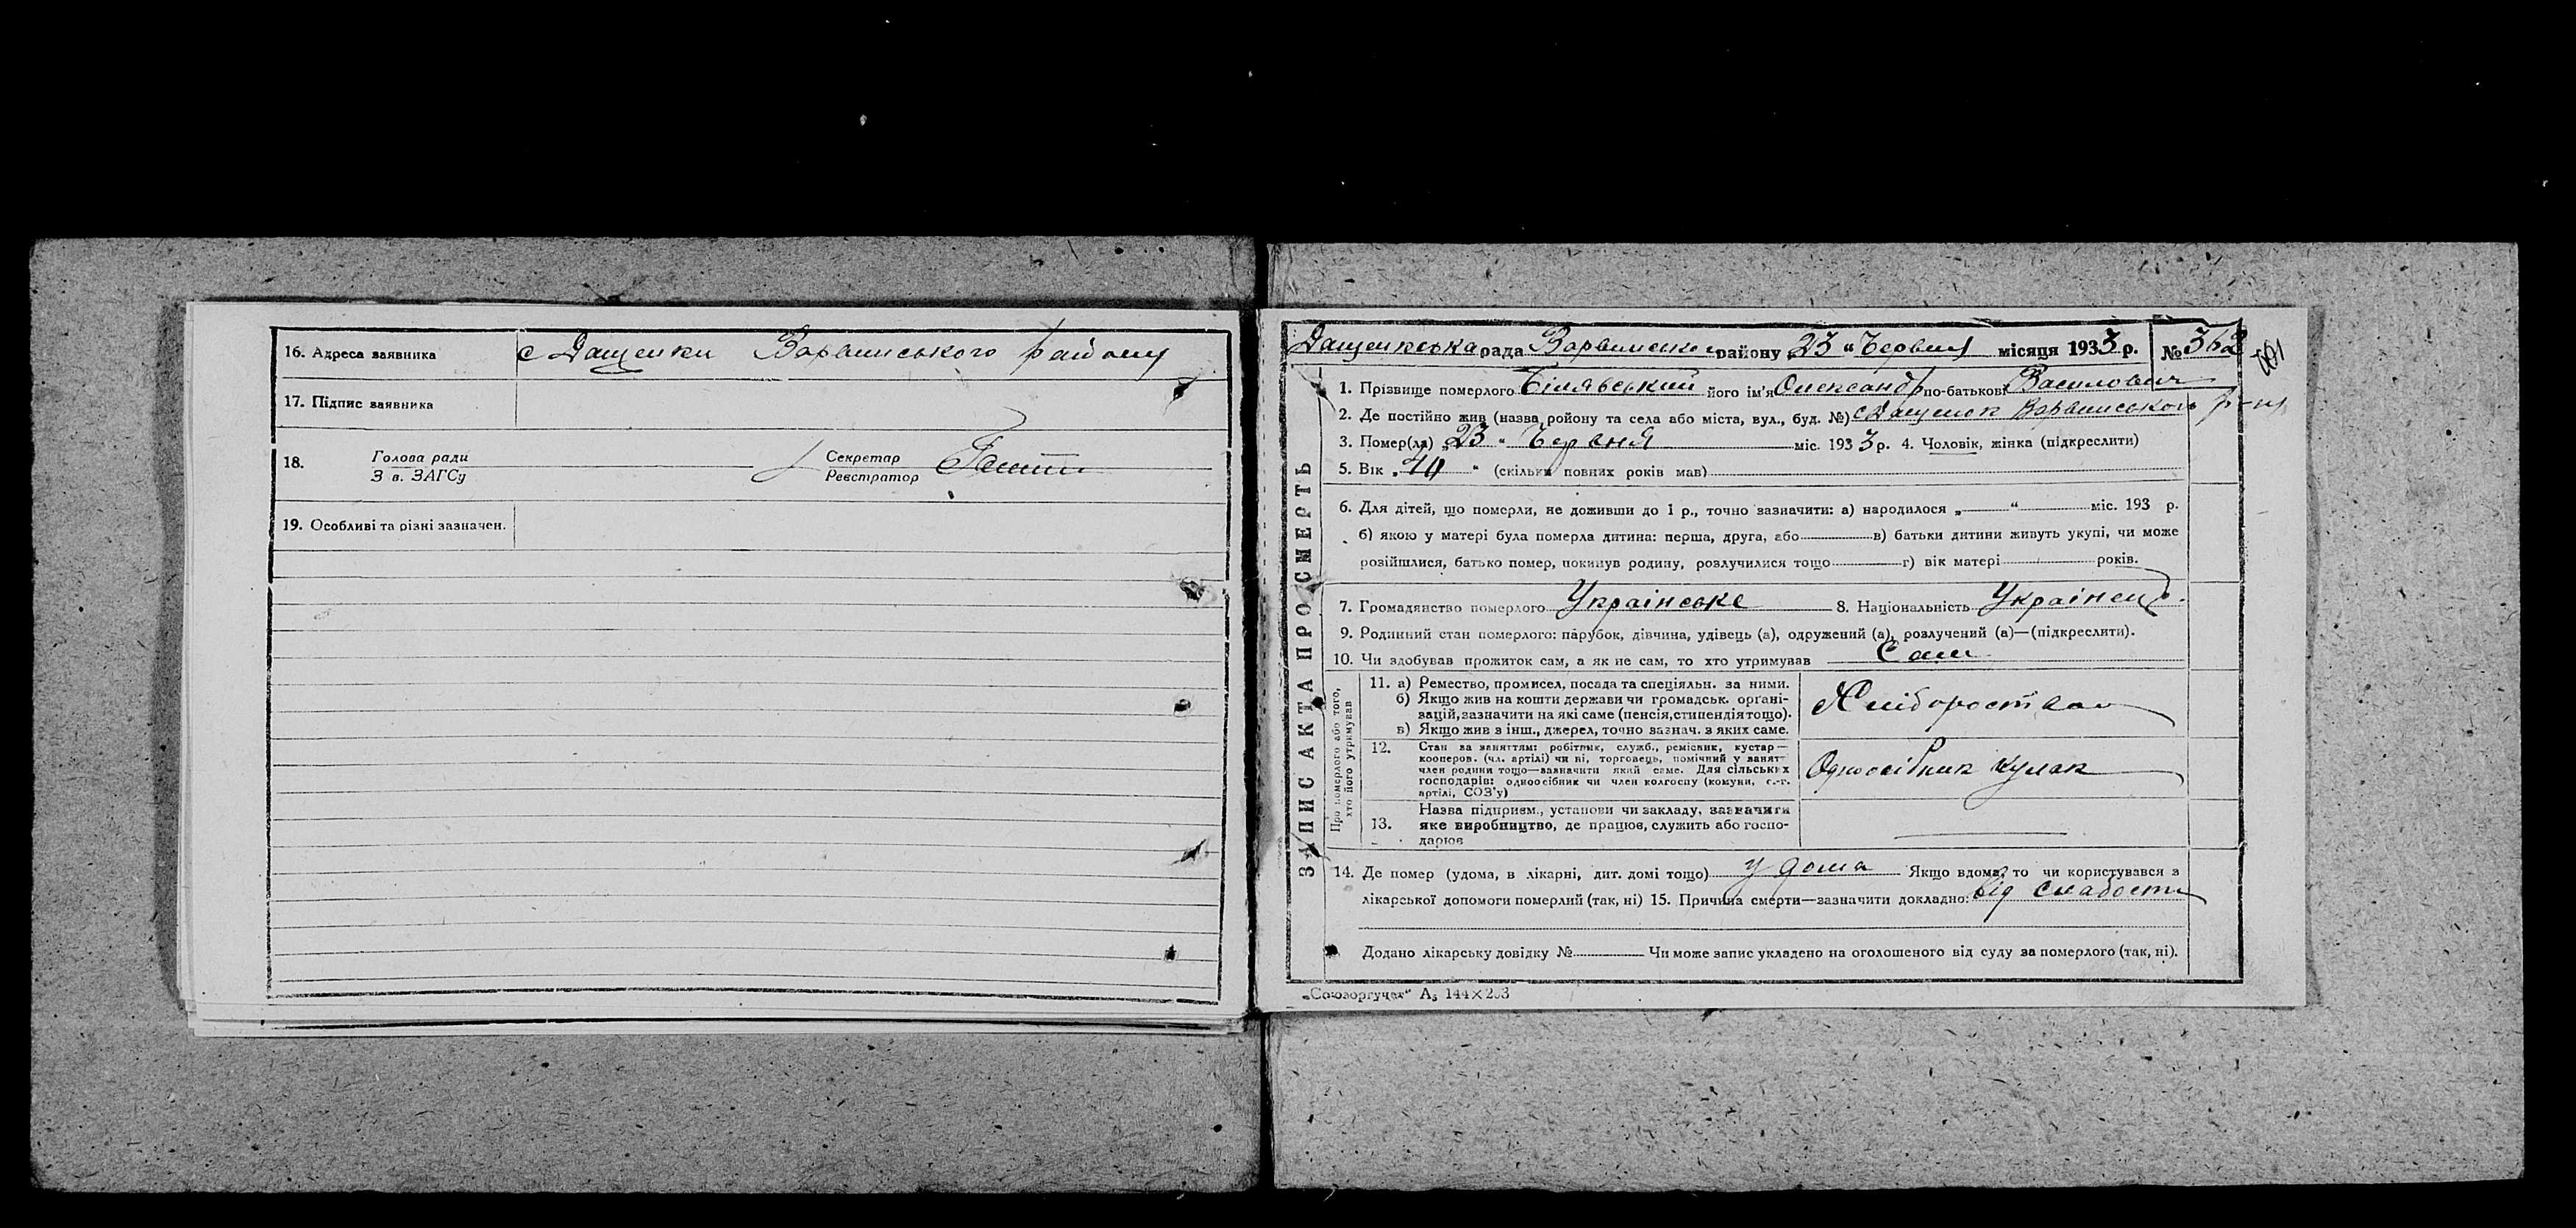 16. Адреса заявника с Дащенки Варвинського району
17. Підпис заявника
18. Голова ради
З в. ЗАГСу
Секретар
Реєстратор
19. Особливі та різні зазначен.
ЗАПИС АКТА ПРО СМЕРТЬ
Дащенкська рада Варвинсько району 23 " Червня місяця 1933 р. №
1. Прізвище померлого Білявський його ім'я Олександр по-батькові Василович
2. Де постійно жив (назва району та села або міста, вул., буд. №) с Дащенок Варвинського р-ну
3. Помер(ла) „23 " Червня міс. 1933 р. 4. Чоловік, жінка (підкреслити)
5. Вік „ " (скільки повних років мав)
6. Для дітей, що померли, не доживши до 1 р., точно зазначити: а) народилося „ " міс. 193 р.
б) якою у матері була померла дитина: перша, друга, або в) батьки дитини живуть укупі, чи може
розійшлися, батько помер, покинув родину, розлучилися тощо г) вік матері років.
7. Громадянство померлого Українське 8. Національність Українець.
9. Родинний стан померлого: парубок, дівчина, удівець (а), одружений (а), розлучений (а)—(підкреслити).
10. Чи здобував прожиток сам, а як не сам, то хто утримував Сам
Про померлого або того,
хто його утримував
11. а) Ремество, промисел, посада та спеціяльн. за ними.
б) Якщо жив на кошти держави чи громадськ. органі-
зацій, зазначити на які саме (пенсія, стипендія тощо).
в) Якщо жив з інш., джерел, точно зазнач. з яких саме.
Хліборобство
12. Стан за заняттям: робітник, служб., ремісник, кустар—
кооперов. (чл. артілі) чи ні, торговець, помічний у занят—
член родини тощо—зазначити який саме. Для сільських
господарів: одноосібник чи член колгоспу (комуни, с.-г.
артілі, СОЗ'у)
Одноосібник кулак
13. Назва підприєм., установи чи закладу, зазначити
яке виробництво, де працює, служить або госпо-
дарює
14. Де помер (удома, в лікарні, дит. домі тощо) у дома Якщо вдома, то чи користувався з
лікарської допомоги померлий (так, ні) 15. Причина смерти—зазначити докладно: від слабости
Додано лікарську довідку № Чи може запис укладено на оголошеного від суду за померлого (так, ні).
„Союзоргучет" А₅ 144×203